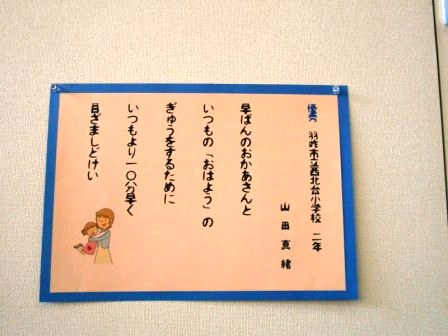 優秀 羽咋市立西北台小学校 二年
山田真緒
早ばんのおかあさんと
いつもの「おはよう」の
ぎゅうをするために
いつもより一〇分早く
目ざましどけい